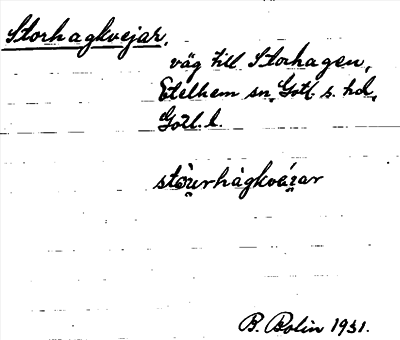 Storhagkvejar,
väg till Storhagen,
Etelhem sn, Gotl. s. hd,
Gotl. l.
B. Bolin 1931.